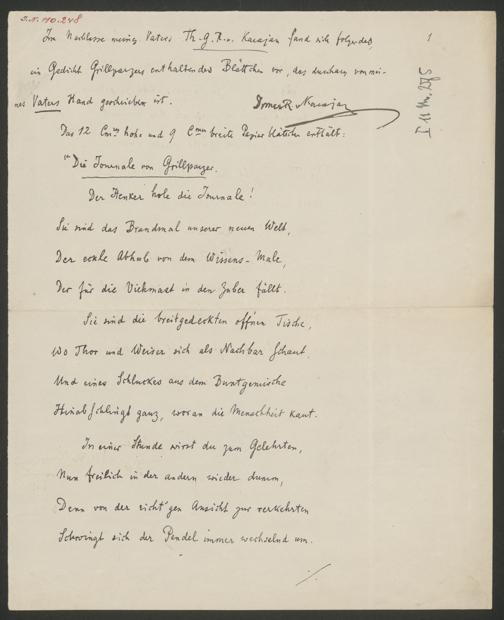 I.N. 110.248
1
Im Nachlasse meines Vaters Th. G. R. v. Karajan fand sich folgendes,
ein Gedicht Grillparzers enthaltendes Blättchen vor, das durchaus von mei-
nes Vaters Hand geschrieben ist. R v Karajan
Das 12 Cm hohe und 9 Cm breite Papierblättchen enthält:
"Die Journale von Grillparzer.
Der Henker hole die Journale!
Sie sind das Brandmal unserer neuen Welt,
Der eckle Abhub von dem Wissens-Male,
Der für die Viehmast in den Zuber fällt.
Sie sind die breitgedeckten offnen Tische,
Wo Thor und Weiser sich als Nachbar schaut,
Und eines Schluckes aus dem Buntgemische
Hinabschlingt ganz, woran die Menschheit kaut.
In einer Stunde wirst du zum Gelehrten,
Nun freilich in der andern wieder dumm,
Denn von der richt'gen Ansicht zur verkehrten
Schwingt sich der Pendel immer wechselnd um.
./.